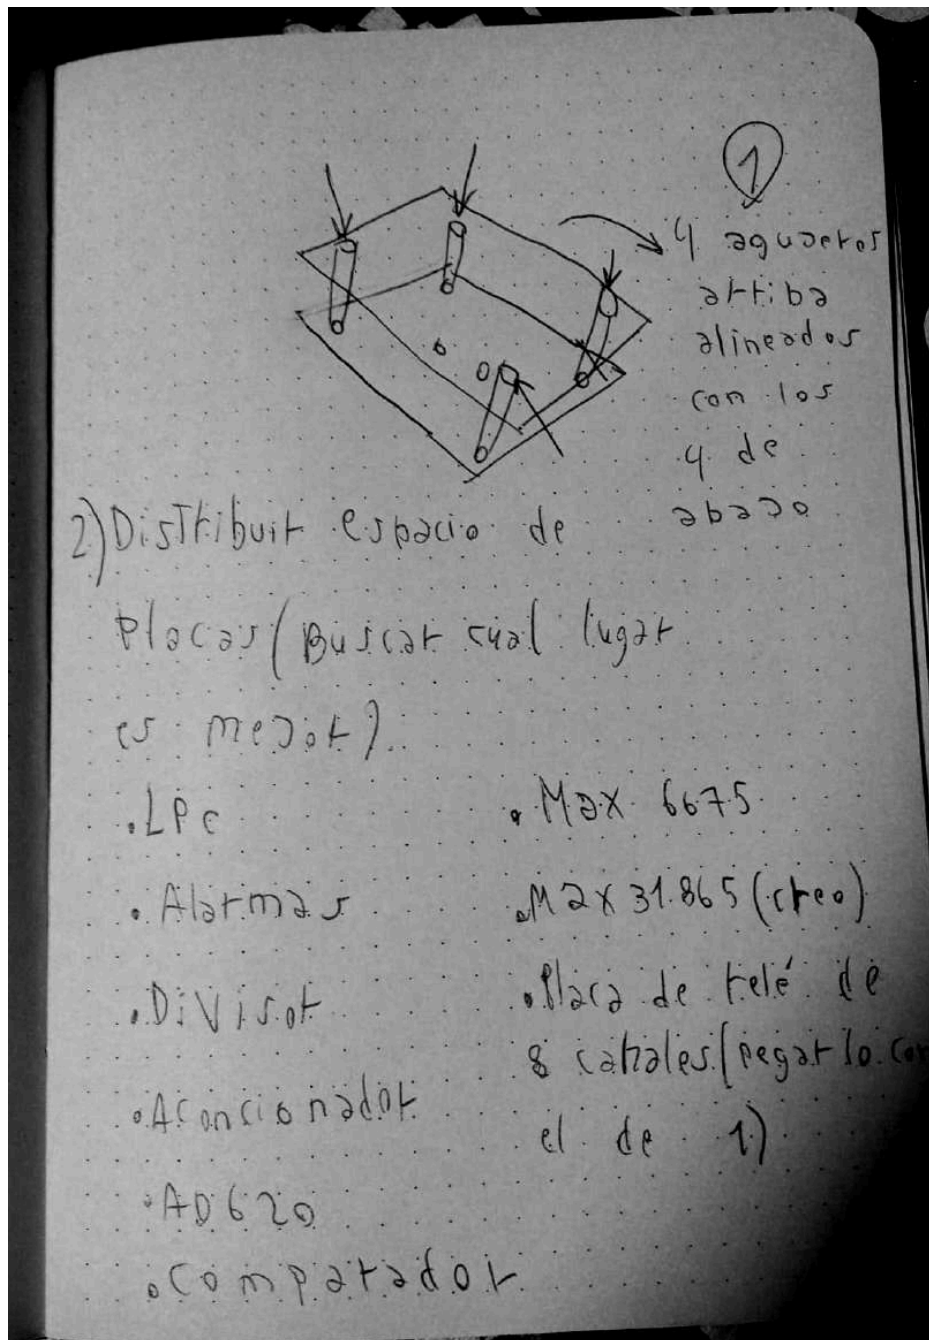 1
4 agujeros
arriba
alineados
con los
4 de
abajo
2) Distribuir espacio de
Placas (Buscar cual lugar
es mejor).
• LPC
• Alarmas
• Divisor
• Aconcionador
• AD620
• Comparador
• Max 6675
• Max 31865 (creo)
• Placa de relé de
8 canales (pegarlo con
el de 1)